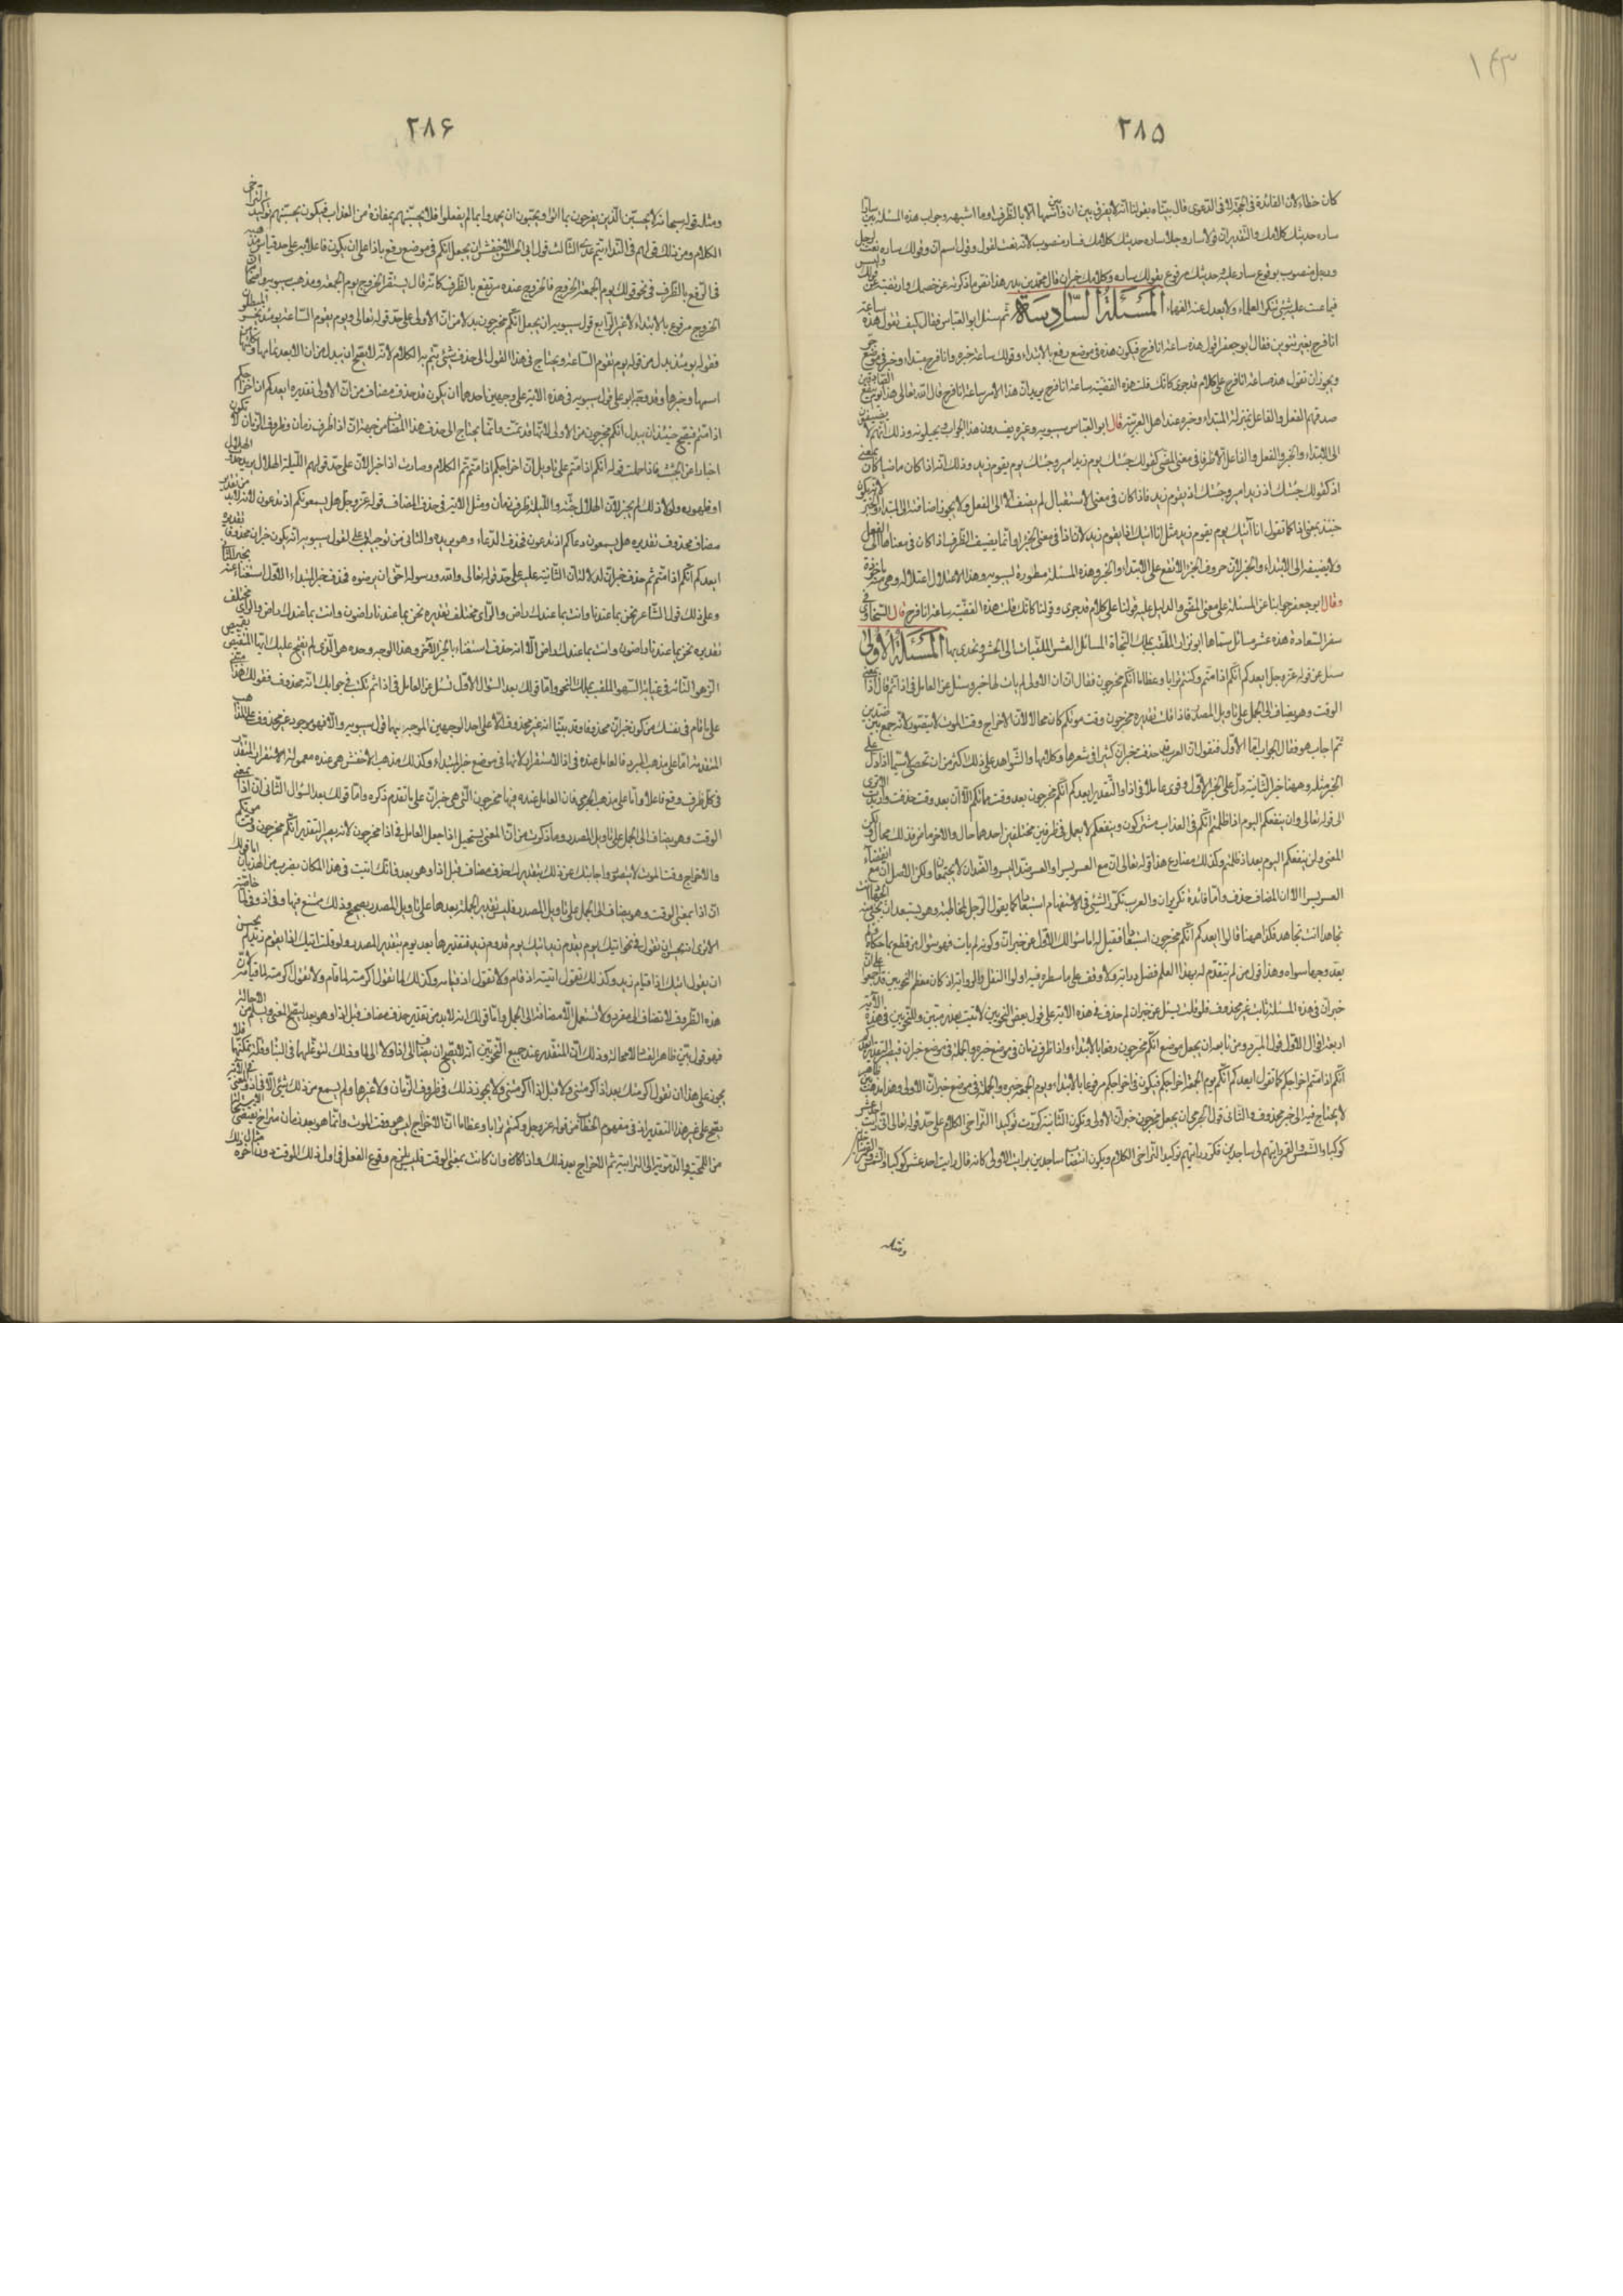 ١٤٣
٢٨٥
كان خطاء لان الفائدة فى الخبر لا فى الدعوى قال
ساره حديثك كلامك والتقدير ان قولا سار رجلا ساره حديثك كلامك فسار منصوب لانه نعت لقول وقول اسم ان وقولك ساره نعت لرجل
ورجل منصوب بوقوع سار عليه وحديثك مرفوع بقولك ساره وكلامك خبر ان قال محمد بن بدر هذا نقص ما ذكرته عن خصمك
فيما عبت عليه شئ ينكره العلماء ولا يعدل عنه الفهماء المسئلة السادسة ثم سئل ابو العباس فقال كيف تقول هذه ساعة
انا فرح بغير تنوين فقال ابو جعفر اقول هذه ساعة انا فرح فيكون هذه فى موضع رفع بالابتداء وقولك ساعة خبره وانا فرح مبتداء وخبر فى موضع جر
ويجوز ان تقول هذه ساعة انا فرح على كلام قد جرى كانك قلت هذه القضية ساعة انا فرح يريد ان هذا الامر ساعة انا فرح قال الله تعالى هذا يوم ينفع الصادقين
صدقهم الفعل والفاعل بمنزلة المبتداء وخبره عند اهل العربية قال ابو العباس سيبويه وغيره يفسدون هذا الجواب ويحيلونه وذلك انهم لا يضيفون
الى الابتداء والخبر والفعل والفاعل الا ظرفا فى معنى المضى كقولك جئتك يوم زيد امير وجئتك يوم يقوم زيد وذلك انه اذا كان ماضيا كان بمعنى
اذ كقولك جئتك اذ زيد امير وجئتك اذ يقوم زيد فاذا كان فى معنى الاستقبال لم يضف الا الى الفعل ولا يجوز اضافته الى المبتداء والخبر لانه يكون
حينئذ بمعنى اذا كما تقول انا آتيك يوم يقوم زيد مثل انا اتيك اذا يقوم زيد لان اذا فى معنى الجزاء وانما يضيف الظرف اذا كان فى معناها الى الفعل
ولا يضيفه الى الابتداء والخبر لان حروف الجزاء لا تقع على الابتداء والخبر وهذه المسئلة مسطورة لسيبويه وهذا الاعتلال اعتلاله وهى ماخوذة
وقال ابو جعفر جوابنا عن المسئلة على معنى المضى والدليل عليه قولنا على كلام قد جرى وقولنا كانك قلت هذه القضية ساعة انا فرح قال السخاوى فى
سفر السعادة هذه عشر مسائل سماها ابو نزار الملقب بملك النحاة المسائل العشر المتعبات الى الحشر وتحدى بها المسئلة الاولى
سئل عن قوله عز وجل ايعدكم انكم اذا متم وكنتم ترابا وعظاما انكم مخرجون فقال ان ان الاولى لم يات لها خبر وسئل عن العامل فى اذا ثم قال اذا بمعنى
الوقت وهو يضاف الى الجمل على تاويل المصدر فاذا قلت تقديره مخرجون وقت موتكم كان محالا لان الاخراج وقت الموت لا يتصور لانه جمع بين ضدين
ثم اجاب هو فقال الجواب اما الاول فنقول ان العرب قد حذفت خبر ان كثيرا فى شعرها وكلامها والشواهد على ذلك اكثر من ان تحصى لا سيما اذا دل على
الخبر مثله وههنا خبر الثانية دل على الخبر الاول وقوى عاملا فى اذا والتقدير ايعدكم انكم مخرجون بعد وقت مماتكم الا ان بعد وقت حذفت واريدت
الى قوله تعالى ولن ينفعكم اليوم اذ ظلمتم انكم فى العذاب مشتركون وينفعكم لا يعمل فى ظرفين مختلفين احدهما حال والاخر ماض فذلك محال ولكن
المعنى ولن ينفعكم اليوم بعد اذ ظلمتم وكذلك مضارع هذا قوله تعالى ان مع العسر يسرا والعسر ضد اليسر والضدان لا يجتمعان ولكن الاصل ان مع انقضاء
العسر يسرا الا ان المضاف حذف واما فائدة تكرير ان والعرب تكرر الشئ فى الاستفهام استبعادا كما يقول الرجل لمخاطبه وهو يستبعد ان يجئ منه الجهاد انت
تجاهد انت تجاهد فكذا ههنا قال ايعدكم انكم مخرجون استبعادا فقيل له اما سؤالك الاول عن خبر ان وكونه لم يات فهو سؤال من قطع بما حكاه
بعد وجها سواه وهذا قول من لم يتقدم له بهذا العلم فضل دراية ولا وقف على ما سطره فيه اولوا النقل والرواية اذ كان معظم النحويين قد اجمعوا على ان
خبر ان فى هذه المسئلة ثابت غير محذوف
اربعة اقوال الاول قول المبرد ومن تابعه ان يجعل موضع انكم مخرجون رفعا بالابتداء واذا ظرف زمان فى موضع خبره والجملة فى موضع خبر ان
انكم اذا متم اخراجكم كما تقول ايعدكم انكم يوم الجمعة اخراجكم فيكون اخراجكم مرفوعا بالابتداء ويوم الجمعة خبره والجملة فى موضع خبر ان الاولى وهذا
لا يحتاج فيه الى خبر محذوف والثانى قول الجرمى ان يجعل مخرجون خبر ان الاولى وتكون الثانية كررت توكيدا لتراخى الكلام على حد قوله تعالى انى رايت احد عشر
كوكبا والشمس والقمر رايتهم لى ساجدين فكرر رايتهم توكيدا لتراخى الكلام ويكون انتصاب ساجدين برايت الاولى كانه قال رايت احد عشر كوكبا والشمس والقمر
ومثله
٢٨٦
ومثله قوله سبحانه لا يحسبن الذين يفرحون بما اتوا ويحبون ان يحمدوا بما لم يفعلوا فلا يحسبنهم بمفازة من العذاب فيكون يحسبنهم توكيدا لتراخى
الكلام ومن ذلك قولهم فى النداء يا تيم تيم عدى الثالث قول ابى الحسن الاخفش ان يجعل انكم فى موضع رفع باذا على ان يكون فاعلا به على حد قياس
فى الرفع بالظرف فى نحو قولك يوم الجمعة الخروج فالخروج عنده مرتفع بالظرف كانه قال يستقر الخروج يوم الجمعة ومذهب سيبويه
الخروج مرفوع بالابتداء لا غير الرابع قول سيبويه ان يجعل انكم مخرجون بدلا من ان الاولى على حد قوله تعالى ويوم تقوم الساعة يومئذ يخسر المبطلون
فقوله يومئذ بدل من قوله يوم تقوم الساعة ويحتاج فى هذا القول الى حذف شئ يتم به الكلام لانه لا يصح ان يبدل من ان الا بعد تمامها
اسمها وخبرها وقد وجه ابو على قول سيبويه فى هذه الاية على وجهين احدهما ان يكون قد حذف مضاف من ان الاولى تقديره ايعدكم ان اخراجكم
اذا متم فيصح حينئذ ان يبدل انكم مخرجون من الاولى لانها قد تمت وانما يحتاج الى حذف هذا المضاف من جهة ان اذا ظرف زمان وظروف الزمان لا تكون
اخبارا عن الجثث فاذا حملت قوله انكم اذا متم على تاويل ان اخراجكم اذا متم تم الكلام وصارت اذا خبرا لان على حد قولهم الليلة الهلال يريد
او ظهوره ولولا ذلك لم يجز لان الهلال جثة والليلة ظرف زمان ومثل الاية فى حذف المضاف قوله عز وجل هل يسمعونكم اذ تدعون لانه لابد من تقدير
مضاف محذوف تقديره هل يسمعون دعاكم اذ تدعون فحذف الدعاء وهو يريده والثانى من توجيه ابى على لقول سيبويه انه يكون خبر ان محذوفا تقديره
ايعدكم انكم اذا متم ثم حذف خبر ان لدلالة ان الثانية عليه على حد قوله تعالى والله ورسوله احق ان يرضوه فحذف خبر المبتداء الاول استغناء عنه بخبر الثانى
وعلى ذلك قول الشاعر نحن بما عندنا وانت بما عندك راض والراى مختلف تقديره نحن بما عندنا راضون وانت بما عندك راض والراى مختلف
تقديره نحن بما عندنا راضون وانت بما عندك راض الا انه حذف استغناء بالخبر الآخر وهذا الوجه وحده هو الذى لم يتضح عليك
على ما قام فى نفسك من كون خبر ان محذوفا وقد بينا انه غير محذوف الا على احد الوجهين الموجه بهما قول سيبويه والا فهو موجود غير محذوف
المتقدمة اما على مذهب المبرد فالعامل عنده فى اذا الاستقرار لانها فى موضع خبر المبتداء وكذلك مذهب الاخفش هى عنده معمولة الاستقرار
فى كل ظرف وقع فاعلا واما على مذهب الجرمى فان العامل عنده فيها مخرجون التى هى خبر ان على ما تقدم ذكره واما قولك بعد السؤال الثانى ان اذا بمعنى
الوقت وهو يضاف الى الجمل على تاويل المصدر وما ذكرته من ان المعنى يستحيل اذا جعل العامل فى اذا مخرجون لانه يصير التقدير انكم مخرجون وقت موتكم
والاخراج وقت الموت لا يتصور واجابتك عن ذلك بتقدير حذف مضاف قبل اذا وهو بعد فانك اتيت فى هذا المكان بضرب من الهذيان اما قولك
ان اذا بمعنى الوقت وهو يضاف الى الجمل على تاويل المصدر فليس تقدير الجملة بعدها على تاويل المصدر بصحيح وذلك ممتنع فيها وفى اذ
الا ترى انه يحسن ان تقول فى نحو اتيك يوم يقدم زيد اتيك يوم قدوم زيد فتقديرها بعد يوم بتقدير المصدر ولو قلت اتيك اذا يقوم زيد لم يحسن
ان يقول اتيك اذا قيام زيد وكذلك تقول اتيته اذ قام ولا تقول اذ قيامه وكذلك لما تقول اكرمته لما قام ولا تقول اكرمته لما قيامه
هذه الظروف لا تضاف الى مفرد ولا تستعمل الا مضافة الى الجمل واما قولك انه لابد من تقدير حذف مضاف قبل اذا وهو بعد ليصح المعنى ويسلم من الاحالة
فهو قول بين ظاهر الفساد والاحالة وذلك ان المتقدم عند جميع النحويين انه لا يصح ان يضاف الى اذا ولا الى لما وذلك لتوغلها فى البناء وقلة تمكنها فلا
يجوز على هذا ان تقول اكرمتك بعد اذ اكرمتنى ولا قبل اذا اكرمتنى ولا يجوز ذلك فى ظروف الزمان ولا غيرها ولم يسمع من ذلك شئ الا فى اذ
يصح على غير هذا التقدير لانه فى مفهوم الخطاب من قوله عز وجل وكنتم ترابا وعظاما ان الاخراج ليس هو وقت الموت وانما هو بعد زمان متراخ
من اللحمية والدموية الى الترابية ثم الاخراج بعد ذلك واذا كان وان كانت بمعنى الوقت فليس يلزم وقوع الفعل فى اول ذلك الوقت دون آخره